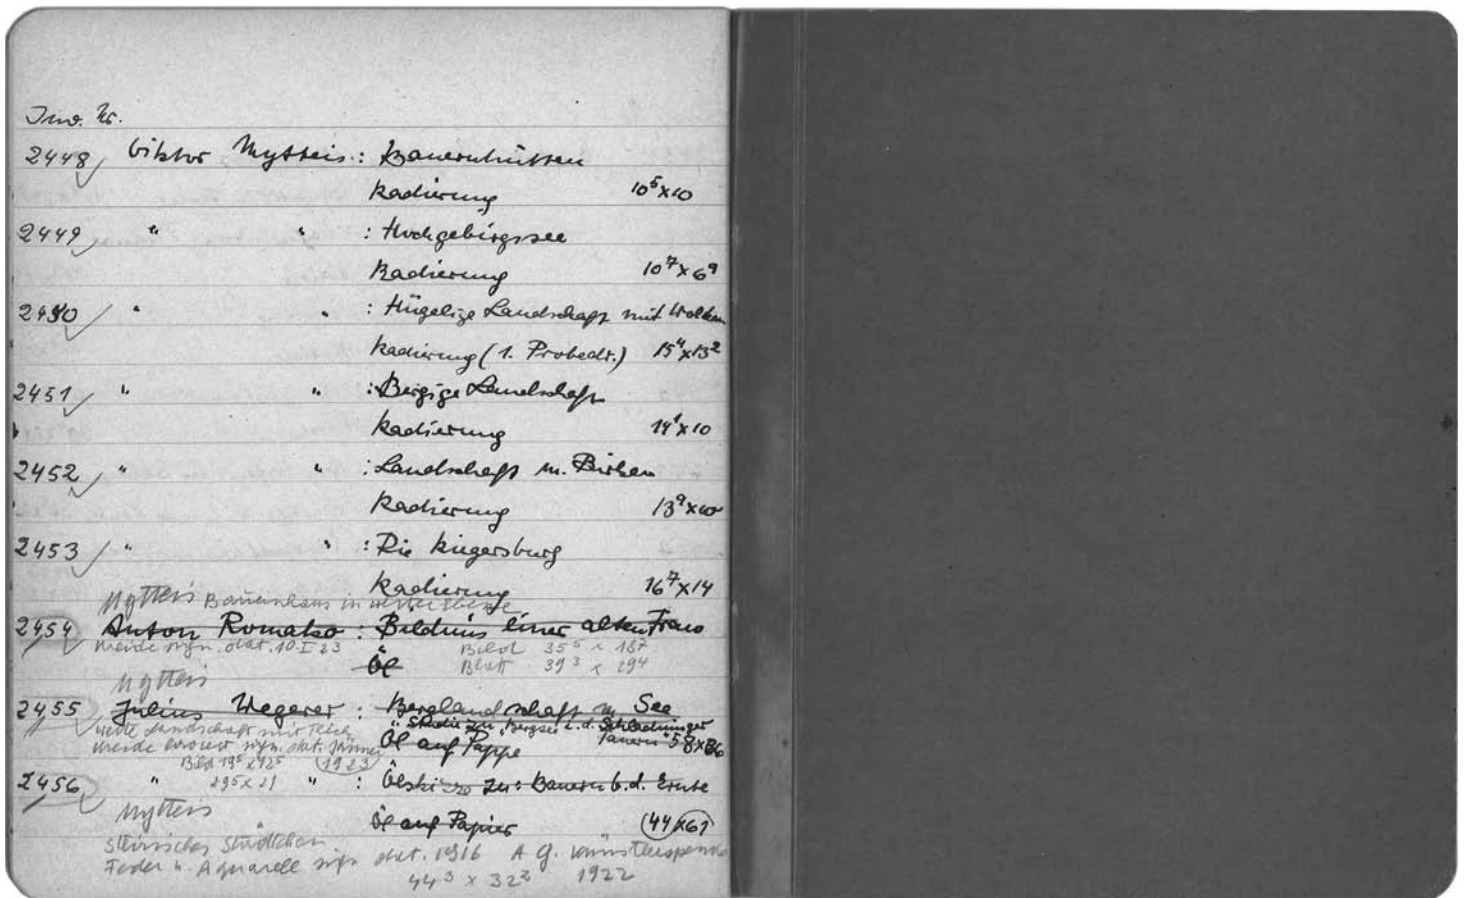 Inv. Nr.
2448 Viktor Mytteis : Bauernhütten
Radierung 10⁵x10
2449 " " : Hochgebirgssee
Radierung 10⁷x6⁹
2450 " " : Hügelige Landschaft mit Wolken
Radierung (1. Probedr.) 15⁴x13²
2451 " " : Bergige Landschaft
Radierung 14¹x10
2452 " " : Landschaft m. Birken
Radierung 13⁹x10
2453 " " : Die Riegersburg
Radierung 16⁷x14
Mytteis Bauernhaus in
2454 Anton Romako : Bildnis einer alten Frau
sign. dat. 10. I 23 Bild 35⁵ x 18⁷
Öl Blatt 39³ x 29⁴
Mytteis
2455 Julius Wegerer : Berglandschaft m. See
weite Landschaft mit Teich "Studie zu "Bergsee i. d. Schladminger
sign. dat. Jänner Öl auf Pappe Tauern" 58x86
Bild 19⁵ x 12⁵ 1923
2456 " 29⁵ x 21 " : Ölskizze zu: Bauern b. d. Ernte
Mytteis
Öl auf Papier 44x61
Steirisches Städtchen
Feder u. Aquarell sign dat. 1916 A. G. Künstlerspende
44³ x 32² 1922